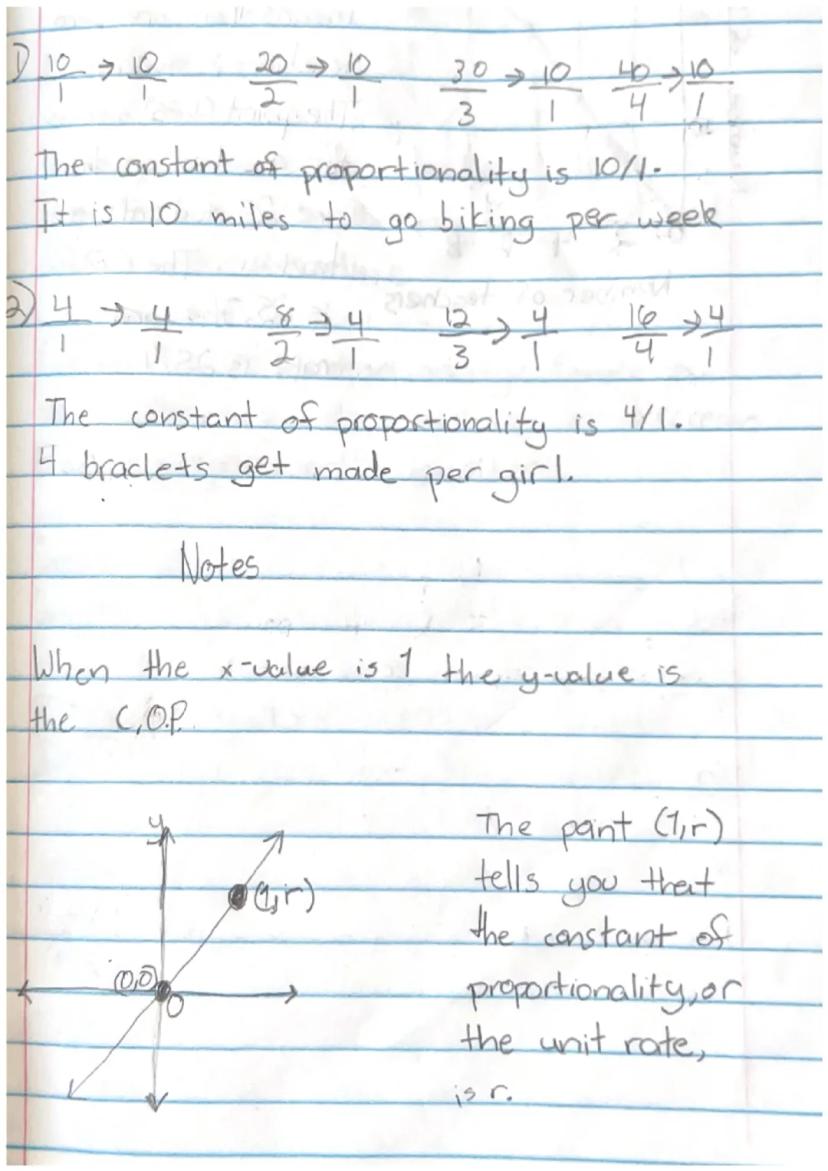 1) 10/1 → 10/1 20/2 → 10/1 30/3 → 10/1 40/4 → 10/1
The constant of proportionality is 10/1.
It is 10 miles to go biking per week
2) 4/1 → 4/1 8/2 → 4/1 12/3 → 4/1 16/4 → 4/1
The constant of proportionality is 4/1.
4 braclets get made per girl.
Notes
When the x-value is 1 the y-value is
the C.O.P.
y
(1,r)
(0,0)
0
The point (1,r)
tells you that
the constant of
proportionality, or
the unit rate,
is r.